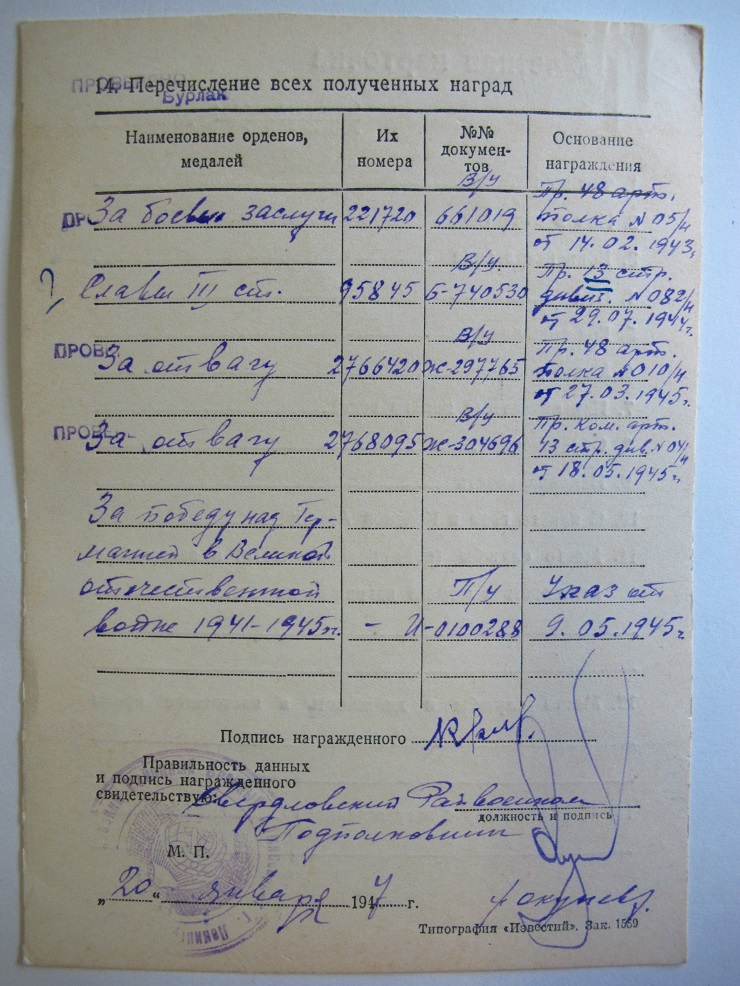 ПРОВЕРЕНО
14. Перечисление всех полученных наград
Бурлак
Наименование орденов, медалей
Их номера
№№ документов
Основание награждения
В/у
Пр. 48 арт.
За боевые заслуги 221720 661019 полка №05/н
от 14.02.1943г
В/у
Пр. 13 стр.
? Славы III ст. 95845 Б-740530 дивиз. №082/н
от 29.07.1944г.
В/у
Пр. 48 арт.
ПРОВЕ
За отвагу 2766420 Ж-297765 полка №010/н
от 27.03.1945г.
В/у
Пр. Ком. арт.
ПРОВЕ
За отвагу 2768095 Ж-304696 13 стр. див. №04/н
от 18.05.1945г.
За победу над Гер-
манией в Великой
отечественной П/у Указ от
войне 1941-1945гг. - И-0100288 9.05.1945г
Подпись награжденного
Правильность данных
и подпись награжденного
свидетельствую: Свердловский Райвоенком
должность и подпись
Подполковник
М. П.
„20“ января 1947 г.
Типография «Известий». Зак. 1559